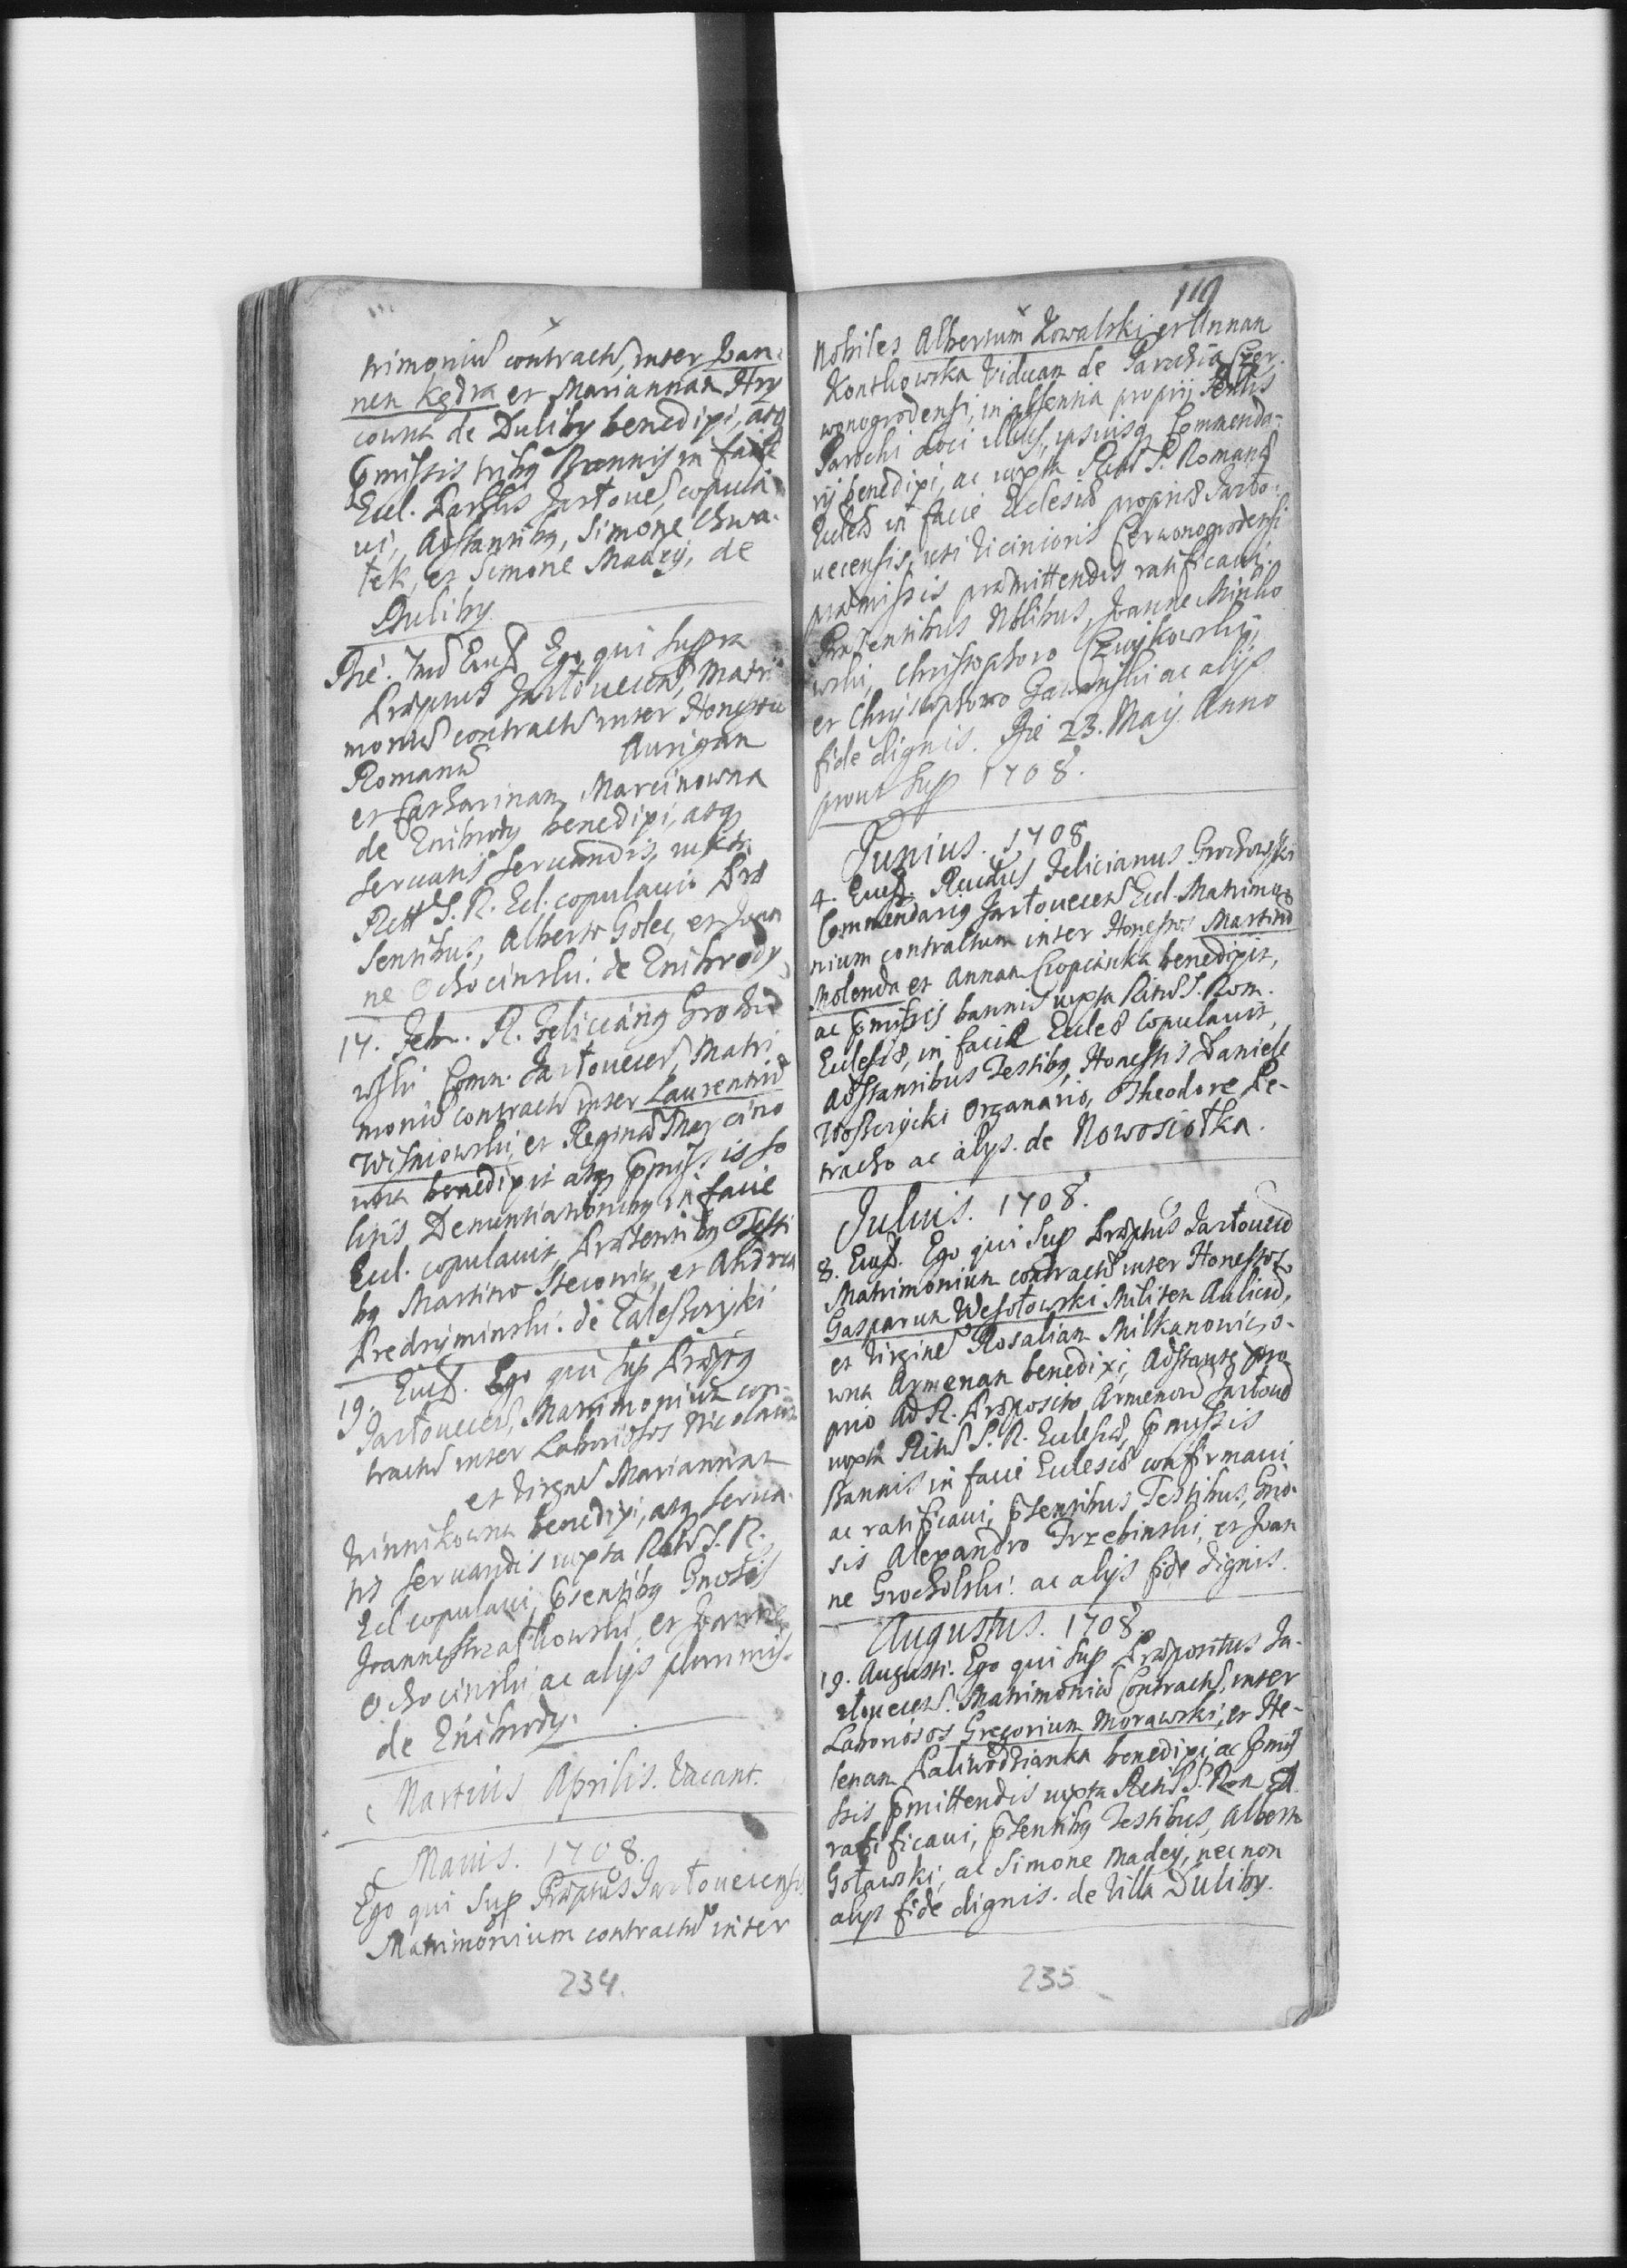 trimoniū contractū, inter Ioan
nen Kędra et Mariannan Hry
cowna de Duliby benedixi, atq
pmissis tribq Bannis in facie
Eccl. Parhlis Jastłouec copula
ui, Adstantibq, Simone Chwa
tek, et Simone Madey, de
Duliby.
Die. Eiusd Ego qui supra
Præptus Jastłouecen, Matri
moniū contractū inter Honestū
Romanū Aurigan
et Catharinam Marcinowna
de Znibrody benedixi, atq
seruatis seruandis, iuxta
Ritū S. R. Ecl. copulaui Præ
sentibus, Alberto Golec, et Joan
ne Ochocinski. de Znibrody
17. Febr. R. Felicianq Grocho
wski Comn. Jastłouecen, Matri
moniū contractū inter Laurentiū
Wisniowski, et Reginā Marcino
wna benedixit atq pmissis so
litis Denuntiationibq in facie
Eccl. copulauit, Præsentibq Testi
bq Martino Stecowicz, et Andrea
Predryminski. de Zalesczyki
19. Eiusd. Ego qui sup Præptq
Jastłouecen, Matrimonium con
tractū inter Laboriosos Nicolaum
et Virgnē Mariannan
Winnikowna benedixi, atq serua
tis seruandis iuxta Ritū S. R.
Ecl copulaui, psentibq Gnosis
Joanne Strzałkowski, et Joanne
Ochocinski, ac alijs plurimis.
de Znibrody.
Martius Aprilis. Vacant.
Maius. 1708.
Ego qui sup Præptus Jastłouecensis
Matrimonium contractū inter
234.
119
Nobiles Albertum Kowalski et Annan
Kontkowska Viduan de Parochia Czer
wonogrodensi, in absentia proprij
Parochi Loci illius, ipsiusq Commenda
rij benedixi, ac iuxta Ritū S. Romanæ
Eccleæ in facie Eclesiæ propriæ Jasto
uecensis, uti Vicinioris Czerwonogrodensi
præmissis præmittendis ratificaui.
Præsentibus Nblibus, Joanne Minko
wski, Christophoro Czuykowski,
et Christophoro Zawanski ac alijs
fide dignis. Die 23. Maij Anno
prout sup 1708.
Junius. 1708
4. Eiusd. Rndus Felicianus Grochowski
Commendariq Jastłouecen Eccl. Matrimo
nium contractum inter Honestos Martinū
Molenda et Annan Czopcianka benedixit,
ac pmissis bannis iuxta Ritū S. Rom.
Eclesiæ, in facie Eccleæ copulauit,
Adstantibus Testibq, Honestis Daniele
Wosczycki Organario, Theodore Pe-
tracho ac alys. de Nowosiołka.
Julius. 1708.
8. Eiusd. Ego qui sup Præptus Jastłouec
Matrimonium contractū inter Honestos
Gasparum Wesołowski Militen Aulicū,
et Virginē Rosalian Milkanowiczo-
wna Armenan benedixi, Adstante pro
prio Ad. R. Præposito Armenorū Jastłouec
iuxta Ritū S. R. Eclesiæ, pmissis
Bannis in facie Eclesiæ confirmaui
ac ratificaui, psentibus, Testibus, Gno-
sis Alexandro Trzebinski, et Joan
ne Grocholski. ac alijs fide dignis.
Augustus. 1708.
19. Augusti. Ego qui sup Præpositus Ja-
stłouecen. Matrimoniū Contractū, inter
Laboriosos Gregorium Morawski, et He-
lenan Paliwodzianka benedixi, ac pmis
sis pmittendis iuxta Ritū S. Rom Ecl
ratificaui, psentibq Testibus, Alberto
Goławski, ac Simone Madey, necnon
alijs fide dignis. de Villa Duliby.
235